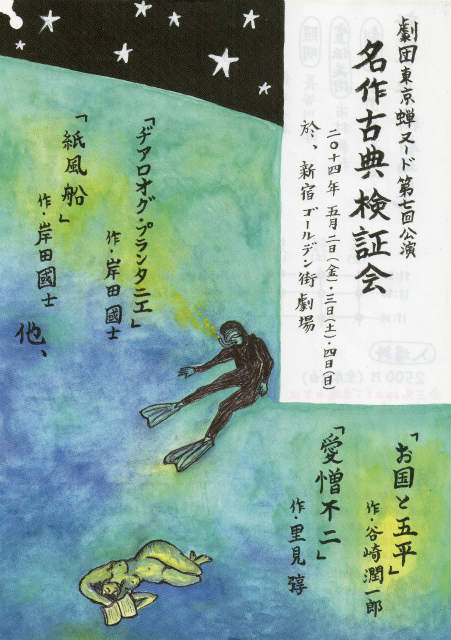 劇団東京蝉ヌード第七回公演
名作古典検証会
二〇十四年 五月二日(金)・三日(土)・四日(日)
於、新宿ゴールデン街劇場
「お国と五平」
作・谷崎潤一郎
「愛憎不二」
作・里見弴
「ヂアロオグ・プランタニエ」
作・岸田國士
「紙風船」
作・岸田國士
他、